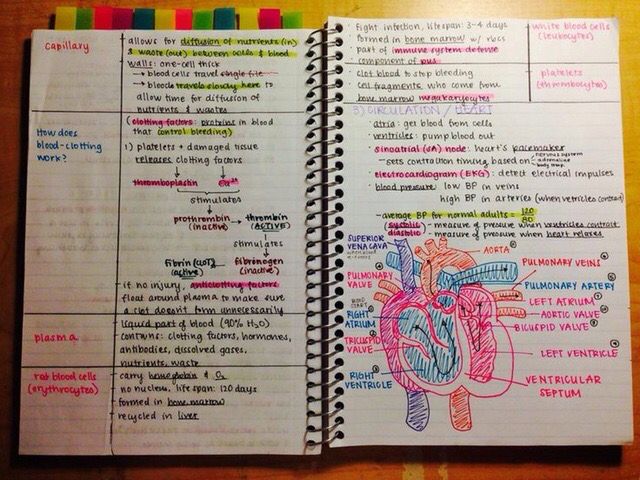 capillary
allows for diffusion of nutrients (in)
& waste (out) between cells & blood
walls: one-cell thick
→ blood cells travel single file
→ blood travels slowly here to
allow time for diffusion of
nutrients & wastes
How does
blood-clotting
work?
(clotting factors: proteins in blood
that control bleeding)
1) platelets + damaged tissue
releases clotting factors
thromboplastin
Ca²⁺
stimulates
prothrombin → thrombin
(inactive) (ACTIVE)
stimulates
Fibrin (CLOT) fibrinogen
(active) (inactive)
if no injury, anticlotting factors
float around plasma to make sure
a clot doesn't form unnecessarily
plasma
liquid part of blood (90% H₂O)
contains: clotting factors, hormones,
antibodies, dissolved gases,
nutrients, waste
red blood cells
(erythrocytes)
carry hemoglobin & O₂
no nucleus, lifespan: 120 days
formed in bone marrow
recycled in liver
fight infection, lifespan: 3-4 days
formed in bone marrow w/ rbcs
part of immune system defense
component of pus
white blood cells
(leukocytes)
clot blood to stop bleeding
cell fragments who come from
bone marrow megakaryocytes
platelets
(thrombocytes)
3) CIRCULATION / HEART
• atria: get blood from cells
• ventricles: pump blood out
• sinoatrial (SA) node: heart's pacemaker
→ sets contraction timing based on
• nervous system
• adrenaline
• body temp.
• electrocardiogram (EKG): detect electrical impulses
• blood pressure: low BP in veins
high BP in arteries (when ventricles contract)
→ average BP for normal adults = 120/80
(systolic) - measure of pressure when ventricles contract
(diastolic) - measure of pressure when heart relaxes
SUPERIOR
VENA CAVA
AORTA
PULMONARY VEINS
PULMONARY
VALVE
PULMONARY ARTERY
LEFT ATRIUM
START
RIGHT
ATRIUM
AORTIC VALVE
BICUSPID VALVE
TRICUSPID
VALVE
LEFT VENTRICLE
RIGHT
VENTRICLE
VENTRICULAR
SEPTUM